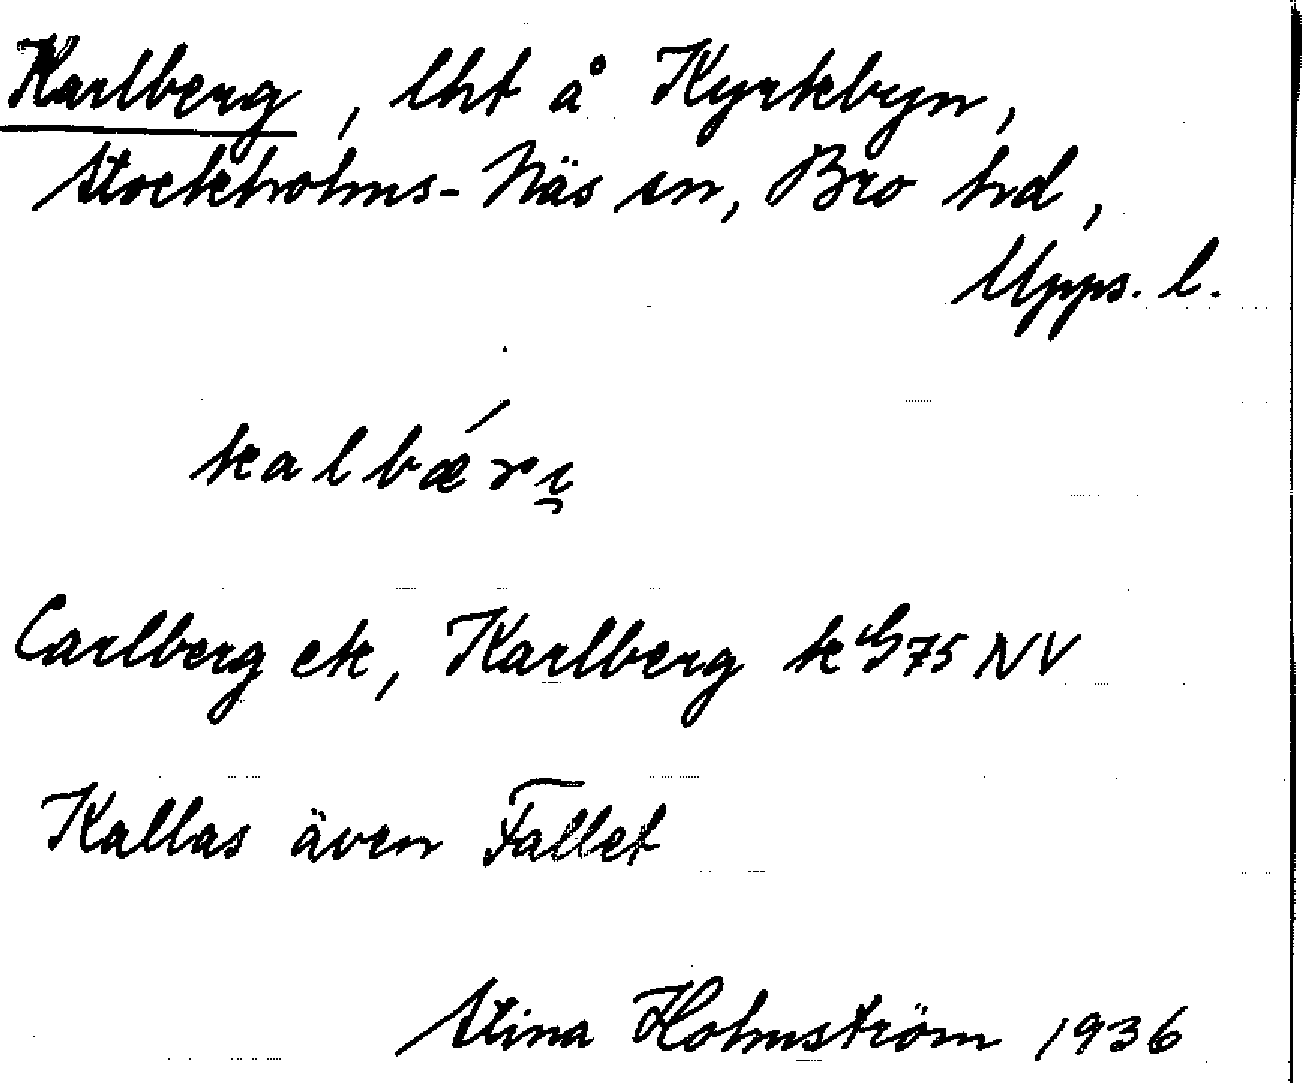 Karlberg, lht å Kyrkbyn,
Stockholms-Näs sn, Bro hd,
Upps. l.
kalbǽri̯
Carlberg ek, Karlberg k G75 NV
Kallas även Fallet
Stina Holmström 1936